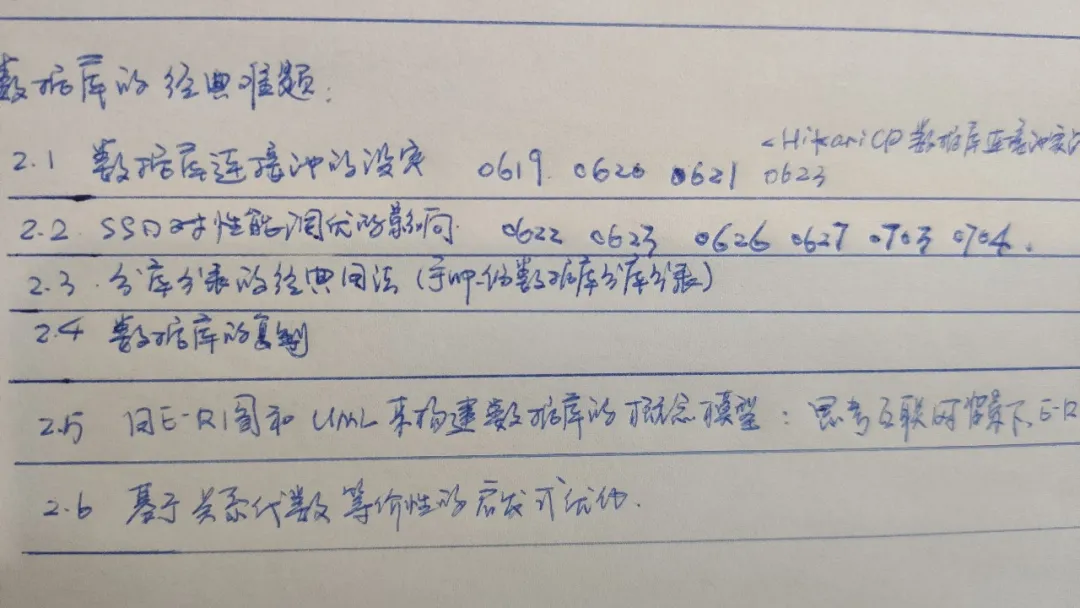 数据库的经典难题:
<HikariCP数据库连接池实
2.1 数据库连接池的设定 0619 0620 0621 0623
2.2 SSD对性能调优的影响 0622 0623 0626 0627 0703 0704.
2.3 分库分表的经典用法(数据库分库分表)
2.4 数据库的复制
2.5 用E-R图和UML来构建数据库的概念模型:思考互联网背景下E-R
2.6 基于关系代数等价性的启发式优化.